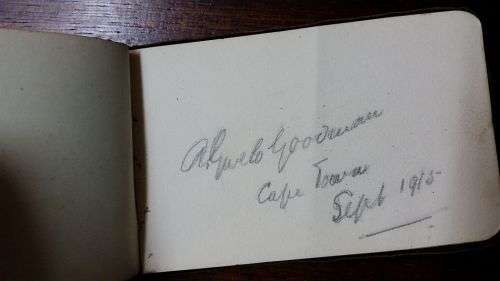 Goodman
Cape Town
Sept 1915